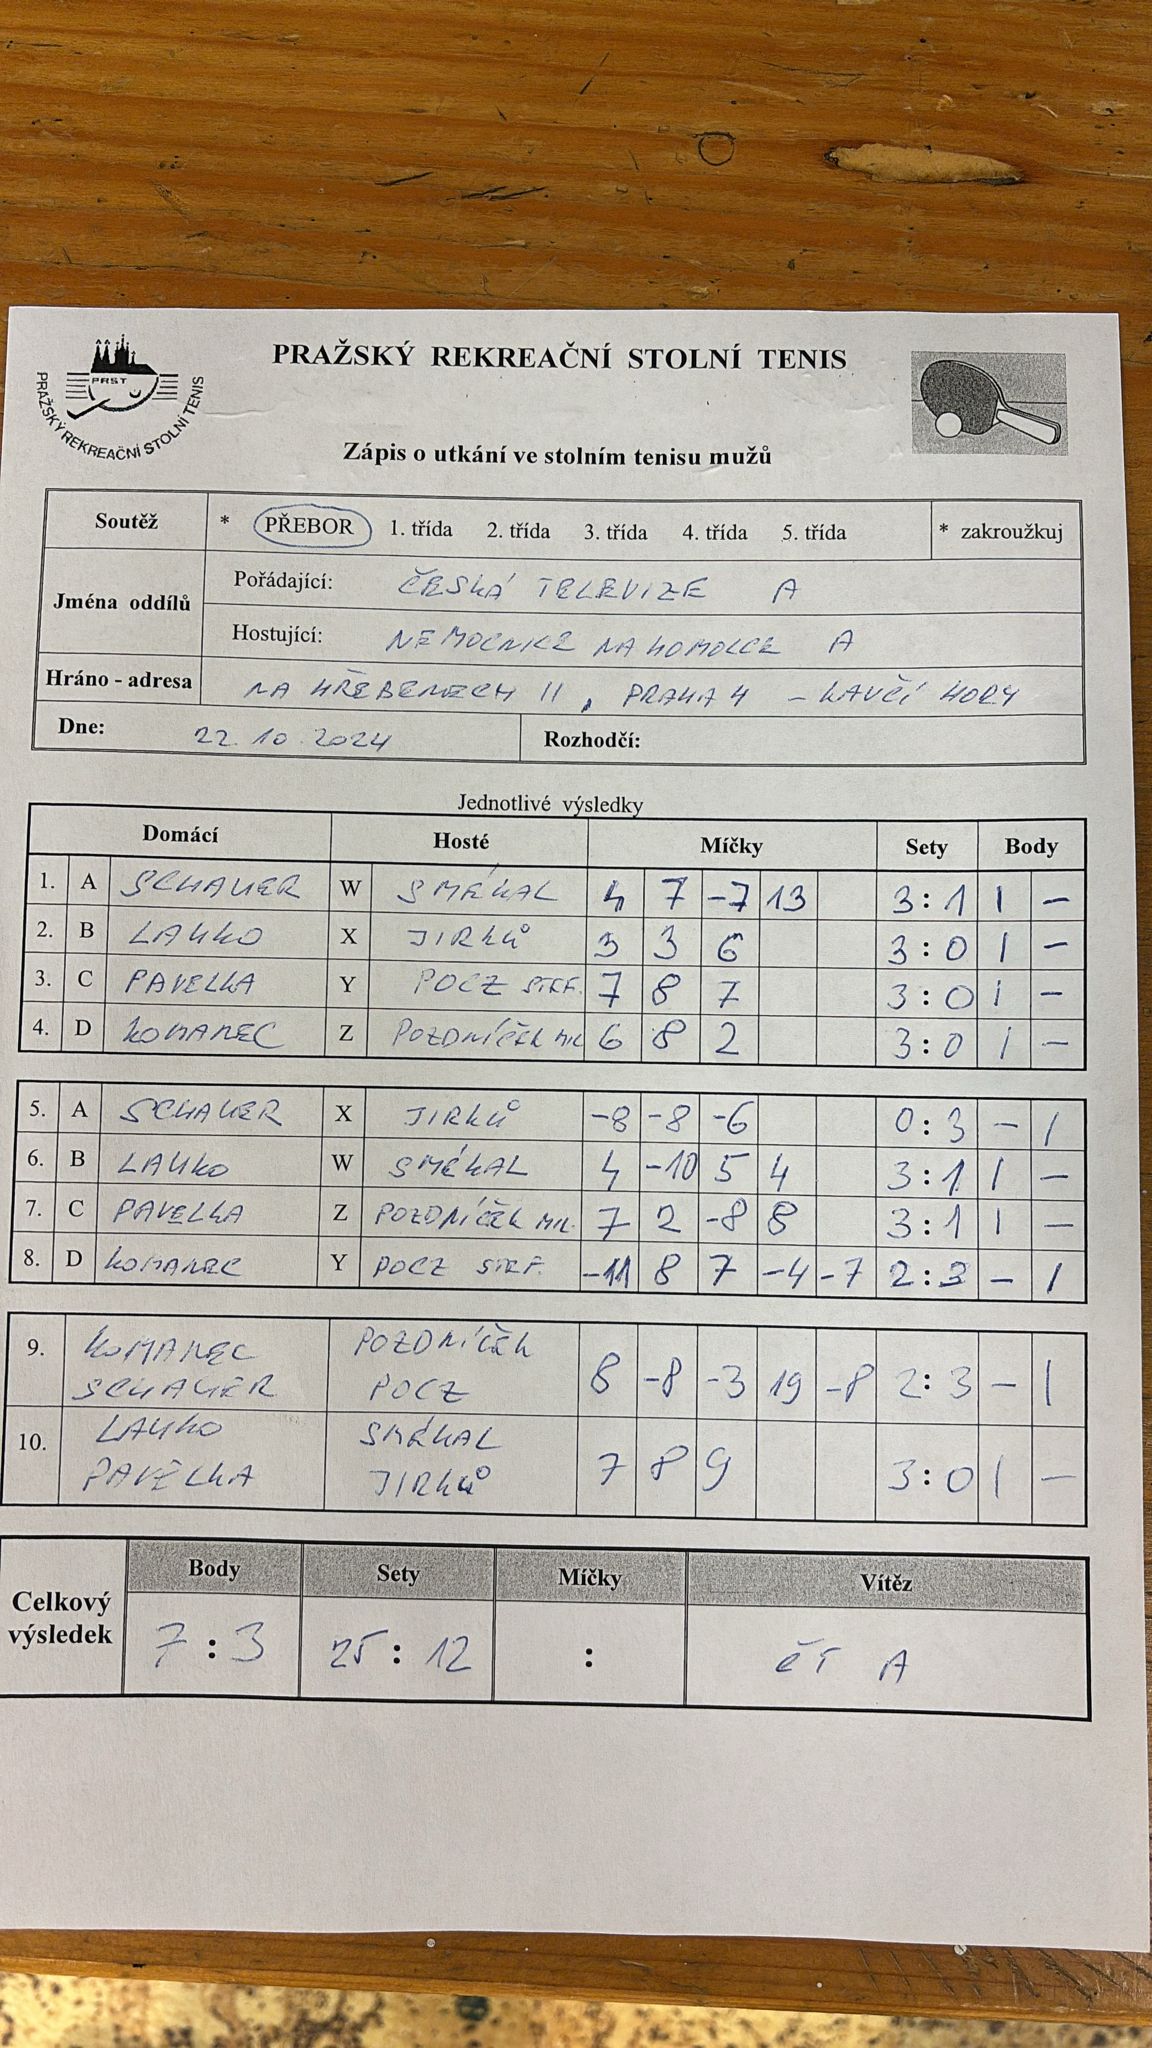 PRAŽSKÝ REKREAČNÍ STOLNÍ TENIS
PRST
PRAŽSKÝ REKREAČNÍ STOLNÍ TENIS
Zápis o utkání ve stolním tenisu mužů
Soutěž * PŘEBOR 1. třída 2. třída 3. třída 4. třída 5. třída * zakroužkuj
Jména oddílů
Pořádající: ČESKÁ TELEVIZE A
Hostující: NEMOCNICE NA HOMOLCE A
Hráno - adresa NA HŘEBENECH II, PRAHA 4 - KAVČÍ HORY
Dne: 22. 10. 2024 Rozhodčí:
Jednotlivé výsledky
Domácí Hosté Míčky Sety Body
1. A SCHAUER W SMÉKAL 4 7 -7 13 3:1 1 -
2. B LAUKO X JIRKŮ 3 3 6 3:0 1 -
3. C PAVELKA Y POCZ STEF. 7 8 7 3:0 1 -
4. D KOMANEC Z POZDNÍČEK MIL 6 8 2 3:0 1 -
5. A SCHAUER X JIRKŮ -8 -8 -6 0:3 - 1
6. B LAUKO W SMÉKAL 4 -10 5 4 3:1 1 -
7. C PAVELKA Z POZDNÍČEK MIL. 7 2 -8 8 3:1 1 -
8. D KOMANEC Y POCZ STEF. -11 8 7 -4 -7 2:3 - 1
9. KOMANEC POZDNÍČEK
SCHAUER POCZ 8 -8 -3 19 -8 2:3 - 1
10. LAUKO SMÉKAL
PAVELKA JIRKŮ 7 8 9 3:0 1 -
Celkový výsledek
Body Sety Míčky Vítěz
7:3 25:12 : ČT A